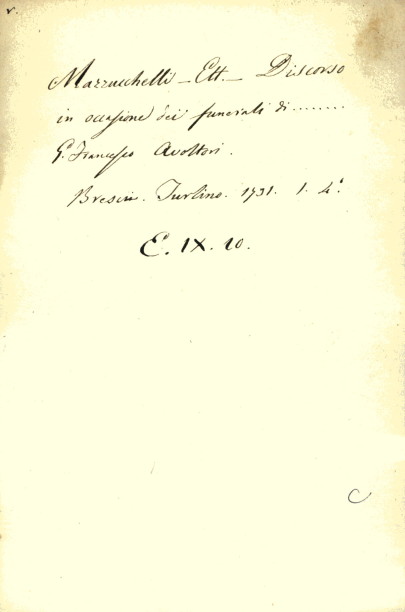 v.
Mazzucchelli - Ett. - Discorso
in occasione dei funerali di ........
G. Francesco Avoltori.
Brescia. Turlino. 1731. 1. 4.°
E. IX. 10.
C